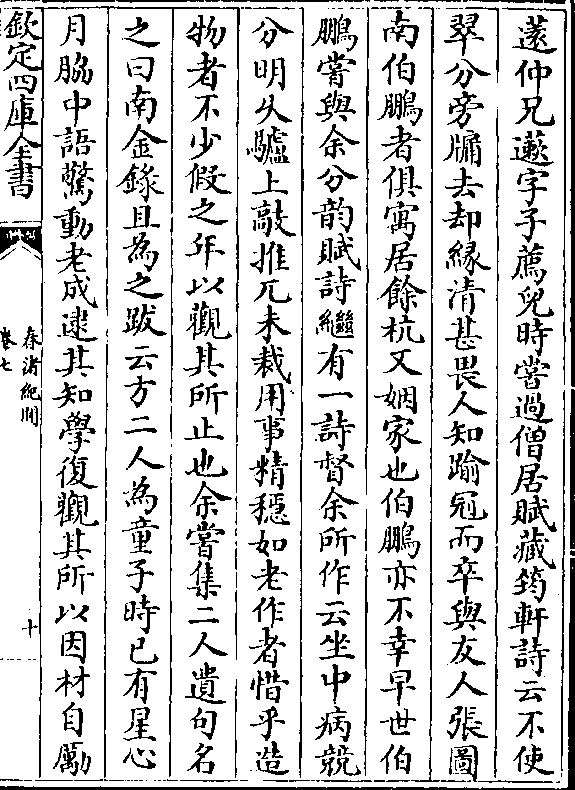 薳仲兄蘧字子薦兒時嘗過僧居賦藏筠軒詩云不使
翠分旁牗去却緣清甚畏人知踰冠而卒與友人張圖
南伯鵬者俱寓居餘杭又姻家也伯鵬亦不幸早世伯
鵬嘗與余分韵賦詩繼有一詩督余所作云坐中病競
分明乆驢上敲推兀未裁用事精穩如老作者惜乎造
物者不少假之年以觀其所止也余嘗集二人遺句名
之曰南金錄且為之跋云方二人為童子時已有星心
月脇中語驚動老成逮其知學復觀其所以因材自勵
欽定四庫全書
春渚紀聞
卷七
十